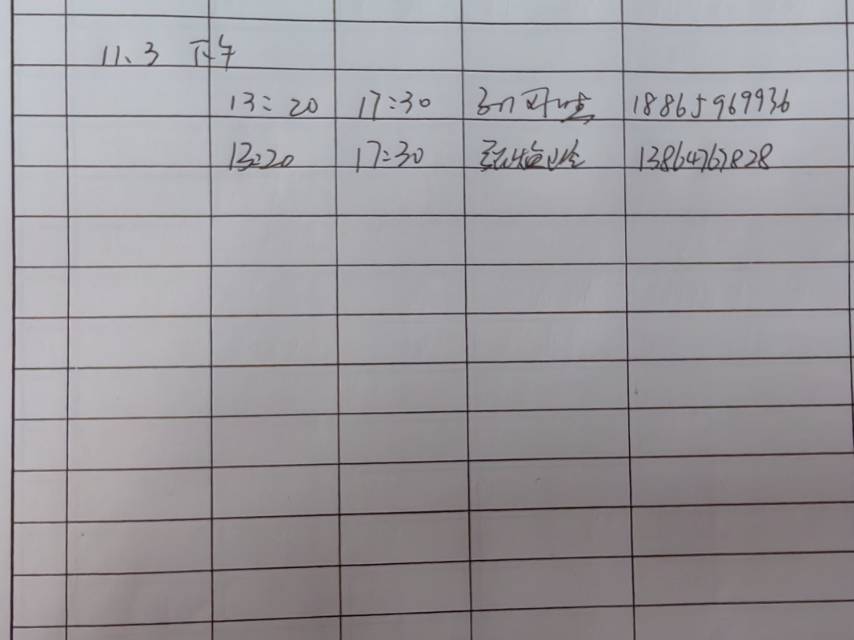 11、3 下午
13:20 17:30 18865969936
13:20 17:30 13864767828